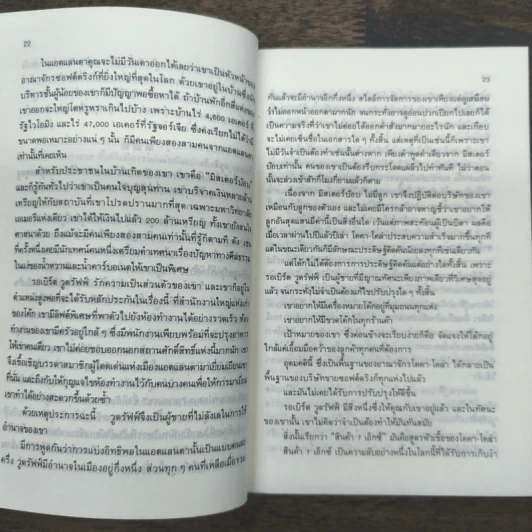 22
ในแอตแลนตาคุณจะไม่มีวันเดาออกได้เลยว่าเขาเป็นหัวหน้า
อาณาจักรซอฟต์ดริงก์ที่ยิ่งใหญ่ที่สุดในโลก ด้วยเขาอยู่ในบ้านซึ่ง
บริหารชั้นผู้น้อยของเขาก็มีปัญญาพอซื้อหาได้ ถ้าบ้านพักอีกสี่แห่งของ
เขาออกจะใหญ่โตหรูหราเกินไปบ้าง เพราะบ้านไร่ 4,600 เอเคอร์
รัฐไวโอมิง และไร่ 47,000 เอเคอร์ที่รัฐจอร์เจีย ซึ่งคงเรียกไม่ได้ว่า
ขนาดพอเหมาะอย่าง แน่ ๆ นั้น ก็มีคนเพียงสองสามคนจากแอตแลนตา
เท่านั้นที่เคยเห็น
สำหรับประชาชนในบ้านเกิดของเขา เขาคือ "มิสเตอร์บ๊อบ
และก็รู้กันทั่วไปว่าเขาเป็นคนใจบุญสุนทาน เขาบริจาคเงินหลายล้าน
เหรียญให้กับสถาบันที่เขาโปรดปรานมากที่สุด เฉพาะมหาวิทยาลัย
เอมอรีแห่งเดียว เขาได้ให้เงินไปแล้ว 200 ล้านเหรียญ ทั้งเขายังสนใจ
ศาสนาด้วย ถึงแม้จะมีคนเพียงสองสามคนเท่านั้นที่รู้ก็ตามที ดัง เช่น
ที่ครั้งหนึ่งเคยมีนักเทศน์คนหนึ่งเตรียมคำเทศน์เรื่องปัญหาทางศีลธรรม
ในแง่ของน้ำหวานและน้ำคาร์บอเนตให้เขาเป็นพิเศษ
รอเบิร์ต วูดรัฟฟ์ รักความเป็นส่วนตัวของเขา และเขาก็อยู่ใน
ตำแหน่งสูงพอที่จะได้รับหลักประกันในเรื่องนี้ ที่สำนักงานใหญ่แห่ง
ของโค้ก เขามีลิฟต์พิเศษที่พาตัวไปยังห้องทำงานได้อย่างรวดเร็ว ห้อง
ทำงานของเขามีครัวอยู่ใกล้ ๆ ซึ่งมีพนักงานเพียบพร้อมที่จะปรุงอาหาร
ให้เขาคนเดียว เขาไม่ค่อยชอบออกนอกสถานศักดิ์สิทธิ์แห่งนี้มากนัก เขา
จึงเชื้อเชิญบรรดาสมาชิกผู้โดดเด่นแห่งเมืองแอตแลนตามาเยี่ยมเยียนเขา
ที่นั่น และยิ่งกับให้กุญแจไขห้องทำงานไว้กับคนบางคนเพื่อให้การมาเยี่ยม
เขาทำได้อย่างสะดวกขึ้นด้วยซ้ำ
ด้วยเหตุประการฉะนี้ วูดรัฟฟ์จึงเป็นผู้ชายที่ไม่ลังเลในการใช้
อำนาจของเขา
มีการพูดกันว่าการแบ่งอิทธิพลในแอตแลนตานั้นเป็นแบบคนละ
ครึ่ง วูดรัฟฟ์มีอำนาจในเมืองอยู่กึ่งหนึ่ง ส่วนทุก ๆ คนที่เหลือเมื่อรวม
23
กันแล้วจะมีอำนาจอีกกึ่งหนึ่ง สไตล์การจัดการของเขาเพียงแต่ดูเสมือน
ว่าไม่ค่อยกดหน้าออกตามากนัก จนกระทั่งอาจดูอ่อนปวกเปียกไปเลยก็ได้
เป็นความจริงที่ว่าเขาไม่ค่อยได้ออกคำสั่งมากมายอะไรนัก และเกือบ
จะไม่เคยเซ็นชื่อในเอกสารใด ๆ ทั้งสิ้น แต่เหตุที่เป็นเช่นนี้ก็เพราะเขา
ไม่มีวันจำเป็นต้องทำเช่นนั้นต่างหาก เพียงคำพูดคำเดียวจาก มิสเตอร์
บ๊อบเท่านั้น คนของเขาเป็นต้องรีบกระโดดแผล็วไปทำทันที ไม่ว่าตอน
นั้นจะล่วงเข้าดึกกี่โมงกี่ยามแล้วก็ตาม
เนื่องจาก มิสเตอร์บ๊อบ ไม่มีลูก เขาจึงปฏิบัติต่อบริษัทของเขา
เหมือนกับลูกของตัวเอง และไม่เคยมีใครกล้าอาจหาญชี้ว่าเขาอยากให้
ลูกอันสุดแสนมีค่านี้เป็นสิ่งอื่นใด เว้นแต่ภาพสะท้อนผู้เป็นบิดา ผลคือ
เมื่อเวลาผ่านไปแล้วปีเล่า โคคา-โคล่าประสบความสำเร็จมากขึ้นทุกที
แต่ในขณะเดียวกันก็มีลักษณะประดิษฐ์คิดค้นน้อยลงทุกทีเช่นเดียวกัน
แต่โค้กไม่ได้ต้องการการประดิษฐ์คิดค้นแต่อย่างใดทั้งสิ้น เพราะ
รอเบิร์ต วูดรัฟฟ์ เป็นผู้ชายที่มีญาณทัศนะเพียงภาพเดียวที่วิเศษสุดอยู่
แล้ว จนกระทั่งไม่จำเป็นต้องแก้ไขปรับปรุงใด ๆ ทั้งสิ้น
เขาอยากให้มีเครื่องหมายโค้กอยู่ที่มุมถนนทุกแห่ง
เขาอยากให้มีขวดโค้กในทุกร้านค้า
เป้าหมายของเขา ซึ่งค่อนข้างจะเรียบง่ายก็คือ จัดแจงให้โค้กอยู่
ใกล้แค่เอื้อมมือคว้าของลูกค้าทุกคนที่ต้องการ
อุดมคตินี้ ซึ่งเป็นพื้นฐานของอาณาจักรโคคา-โคล่า ได้กลายเป็น
พื้นฐานของบริษัทขายซอฟต์ดริงก์ทุกแห่งไปแล้ว
และมันไม่เคยได้รับการปรับปรุงให้ดีขึ้น
รอเบิร์ต วูดรัฟฟ์ มีสิ่งหนึ่งซึ่งให้คุณกับเขาอยู่แล้ว และในทัศนะ
ของเขานั้น เขาไม่คิดว่าจำเป็นต้องทำให้มันทันสมัย
สิ่งนั้นเรียกว่า "สินค้า 7 เอ็กซ์" มันคือสูตรหัวเชื้อของโคคา-โคล่า
สินค้า 7 เอ็กซ์ เป็นความลับอย่างหนึ่งในโลกนี้ที่ได้รับการเก็บงำ